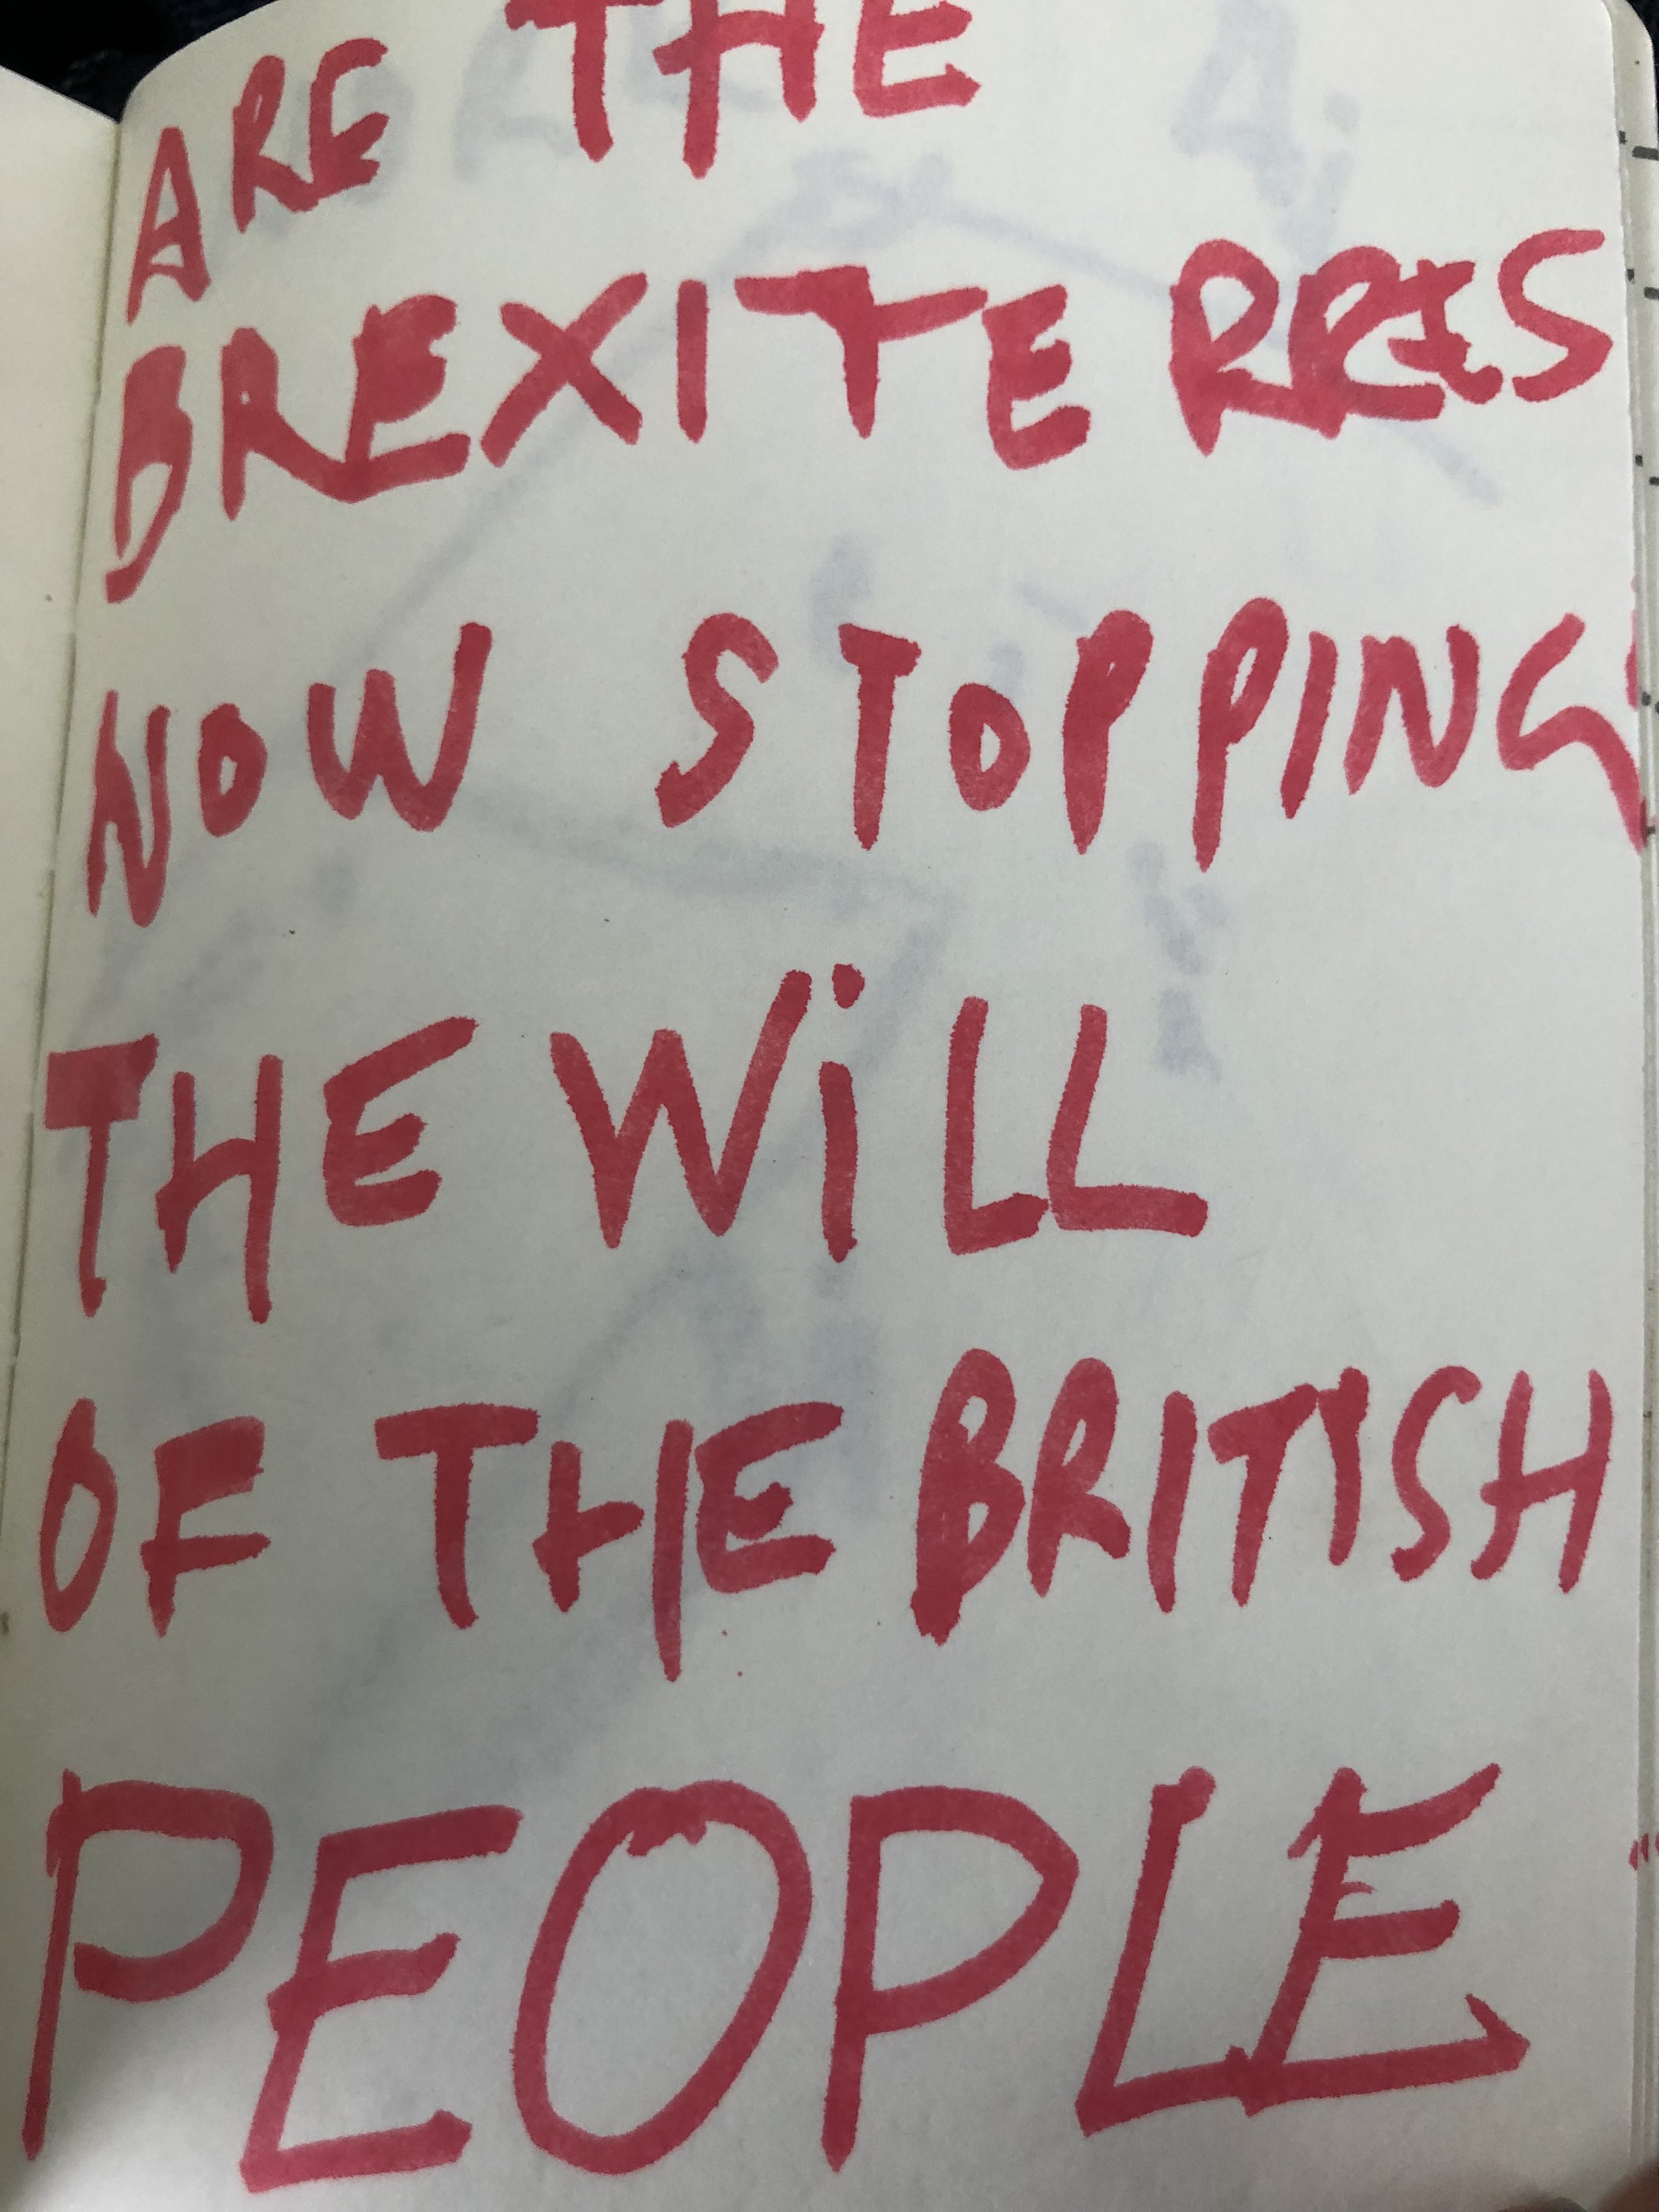 ARE THE
BREXITERRES
NOW STOPPING
THE WiLL
OF THE BRITISH
PEOPLE